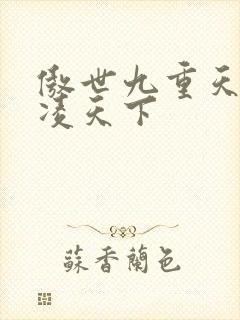 傲世九重天
凌天下
蘇香蘭色